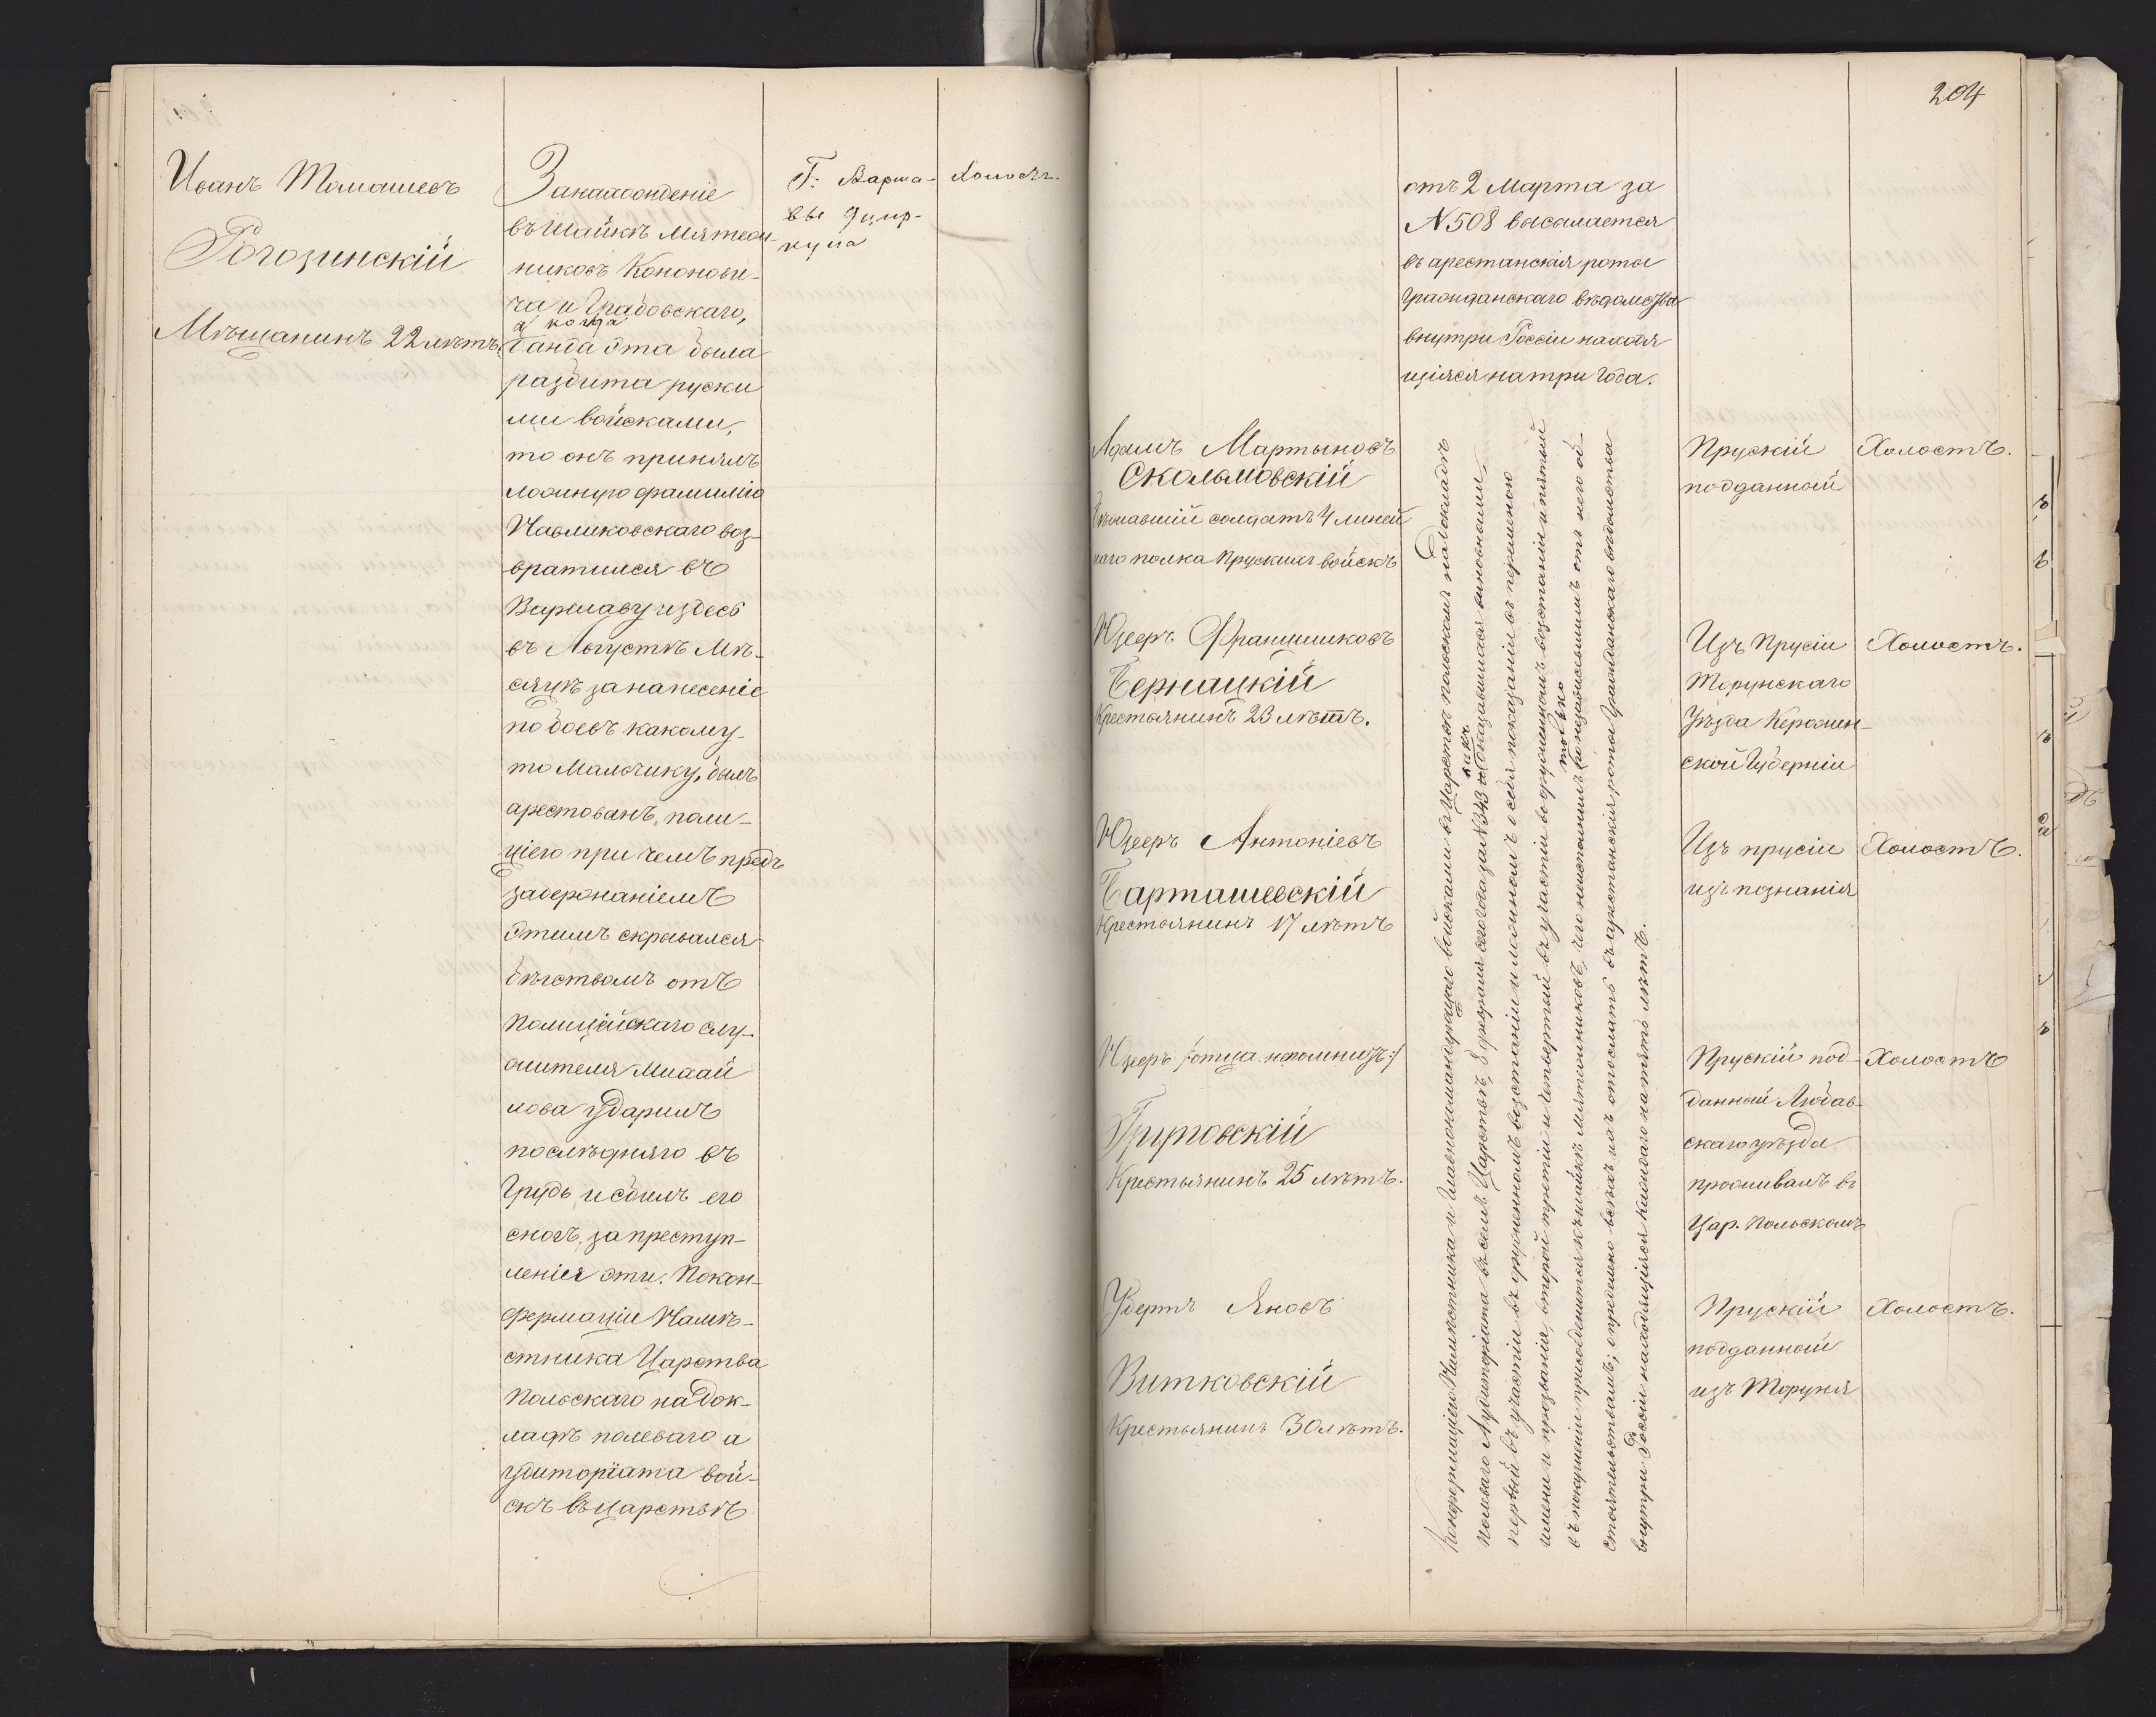 Иванъ Томашевъ
Рогозинскій
Мѣщанинъ 22 лѣтъ.
За нахожденіе
въ шайкѣ Мятеж-
никовъ Кононови-
ча и Грабовскаго,
а когда
банда эта была
разбита руски
ми войсками,
то онъ принялъ
ложную фамилію
Павликовскаго воз-
вратился въ
Варшаву и здесь
въ Августѣ Мѣ-
сяцѣ за нанесеніе
побоевъ какому-
то Мальчику, былъ
арестованъ поли-
ціею при чемъ предъ
задержаніемъ
этимъ скрывался
бѣгствомъ отъ
Полицейскаго слу-
жителя Михай
лова ударилъ
послѣдняго въ
Грудь и сбилъ его
сногъ, за преступ-
ленія эти. По кон-
фермаціи Намѣ-
стника Царства
Польскаго на док-
ладѣ полеваго а
удиторіата вой-
скъ въ царствѣ
Г: Варша-
вы 9 цир-
кула
Холостъ.
204
отъ 2 Марта за
N 508 высылается
въ арестанскія роты
Гражданскаго вѣдомства
внутри Россіи находя
щіяся на три года.
Адамъ Мартыновъ
Скольмовскій
бѣжавшій солдатъ 4 линей
наго полка Прускихъ войскъ
Юзефъ Францишковъ
Бернацкій
Крестьянинъ 23 лѣтъ.
Юзефъ Антоніевъ
Барташевскій
Крестьянинъ 17 лѣтъ
Юзефъ /:отца непомнитъ:/
Груповскій
Крестьянинъ 25 лѣтъ.
Убертъ Яновъ
Витковскій
Крестьянинъ 30 лѣтъ.
Конфермаціею Намѣстника и Главнокомандующаго войсками въ Царствѣ Польскомъ на докладѣ
Полеваго Аудиторіата въ семъ Царствѣ, 8 февраля сего года за N 343 какъ оказавшихся виновными,
первый въ участіи въ вооруженномъ возстаніи и ложномъ о себѣ показаніи съ переменою
имени и прозванія, второй третій и четвертый въ участіи въ вооруженномъ возстаніи и пятый
въ покушеніи присоединиться къ шайкѣ мятежниковъ, чего неисполнилъ только по независѣвшимъ отъ него об-
стоятельствамъ; опредѣлено всѣхъ ихъ отослать въ арестанскія роты Гражданскаго вѣдомства
внутри Россіи находящіяся каждаго на пять лѣтъ.
Прускій
подданный
Холостъ.
Изъ Прусіи
Торунскаго
Уѣзда
ской Губерніи
Холостъ.
Изъ прусіи
изъ познанія
Холостъ.
Прускій под-
данный Любав-
скаго уѣзда
проживалъ въ
Цар. Польскомъ
Холостъ
Прускій
подданный
изъ Торуня
Холостъ.